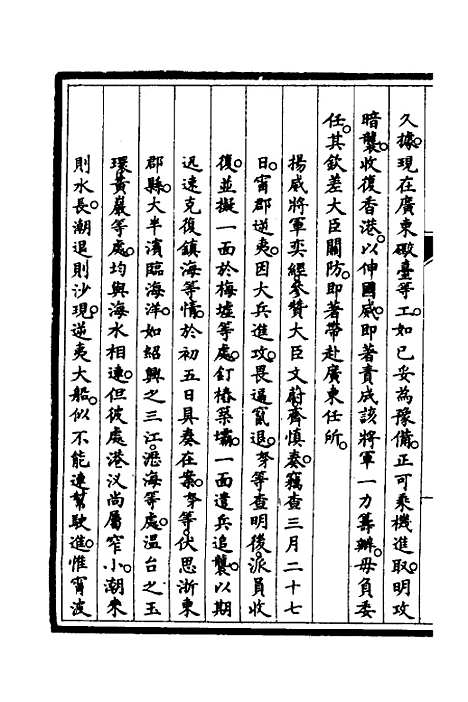 久據。現在廣東礮臺等工。如已妥為豫備。正可乘機進取。明攻
暗襲。收復香港。以伸國威。即著責成該將軍一力籌辦。毋負委
任。其欽差大臣關防。即著帶赴廣東任所。
揚威將軍奕經參贊大臣文蔚齊慎奏。竊查三月二十七
日。甯郡逆夷。因大兵進攻。畏逼竄退。奴等查明後。派員收
復。並擬一面於梅墟等處。釘樁築壩。一面遣兵追襲。以期
迅速克復鎮海等情。於初五日具奏在案。奴等伏思浙東
郡縣。大半濱臨海洋。如紹興之三江。瀝海等處。溫台之玉
環黃巖等處。均與海水相連。但彼處港汊尚屬窄小。潮來
則水長。潮退則沙現。逆夷大船。似不能連幫駛進。惟甯波